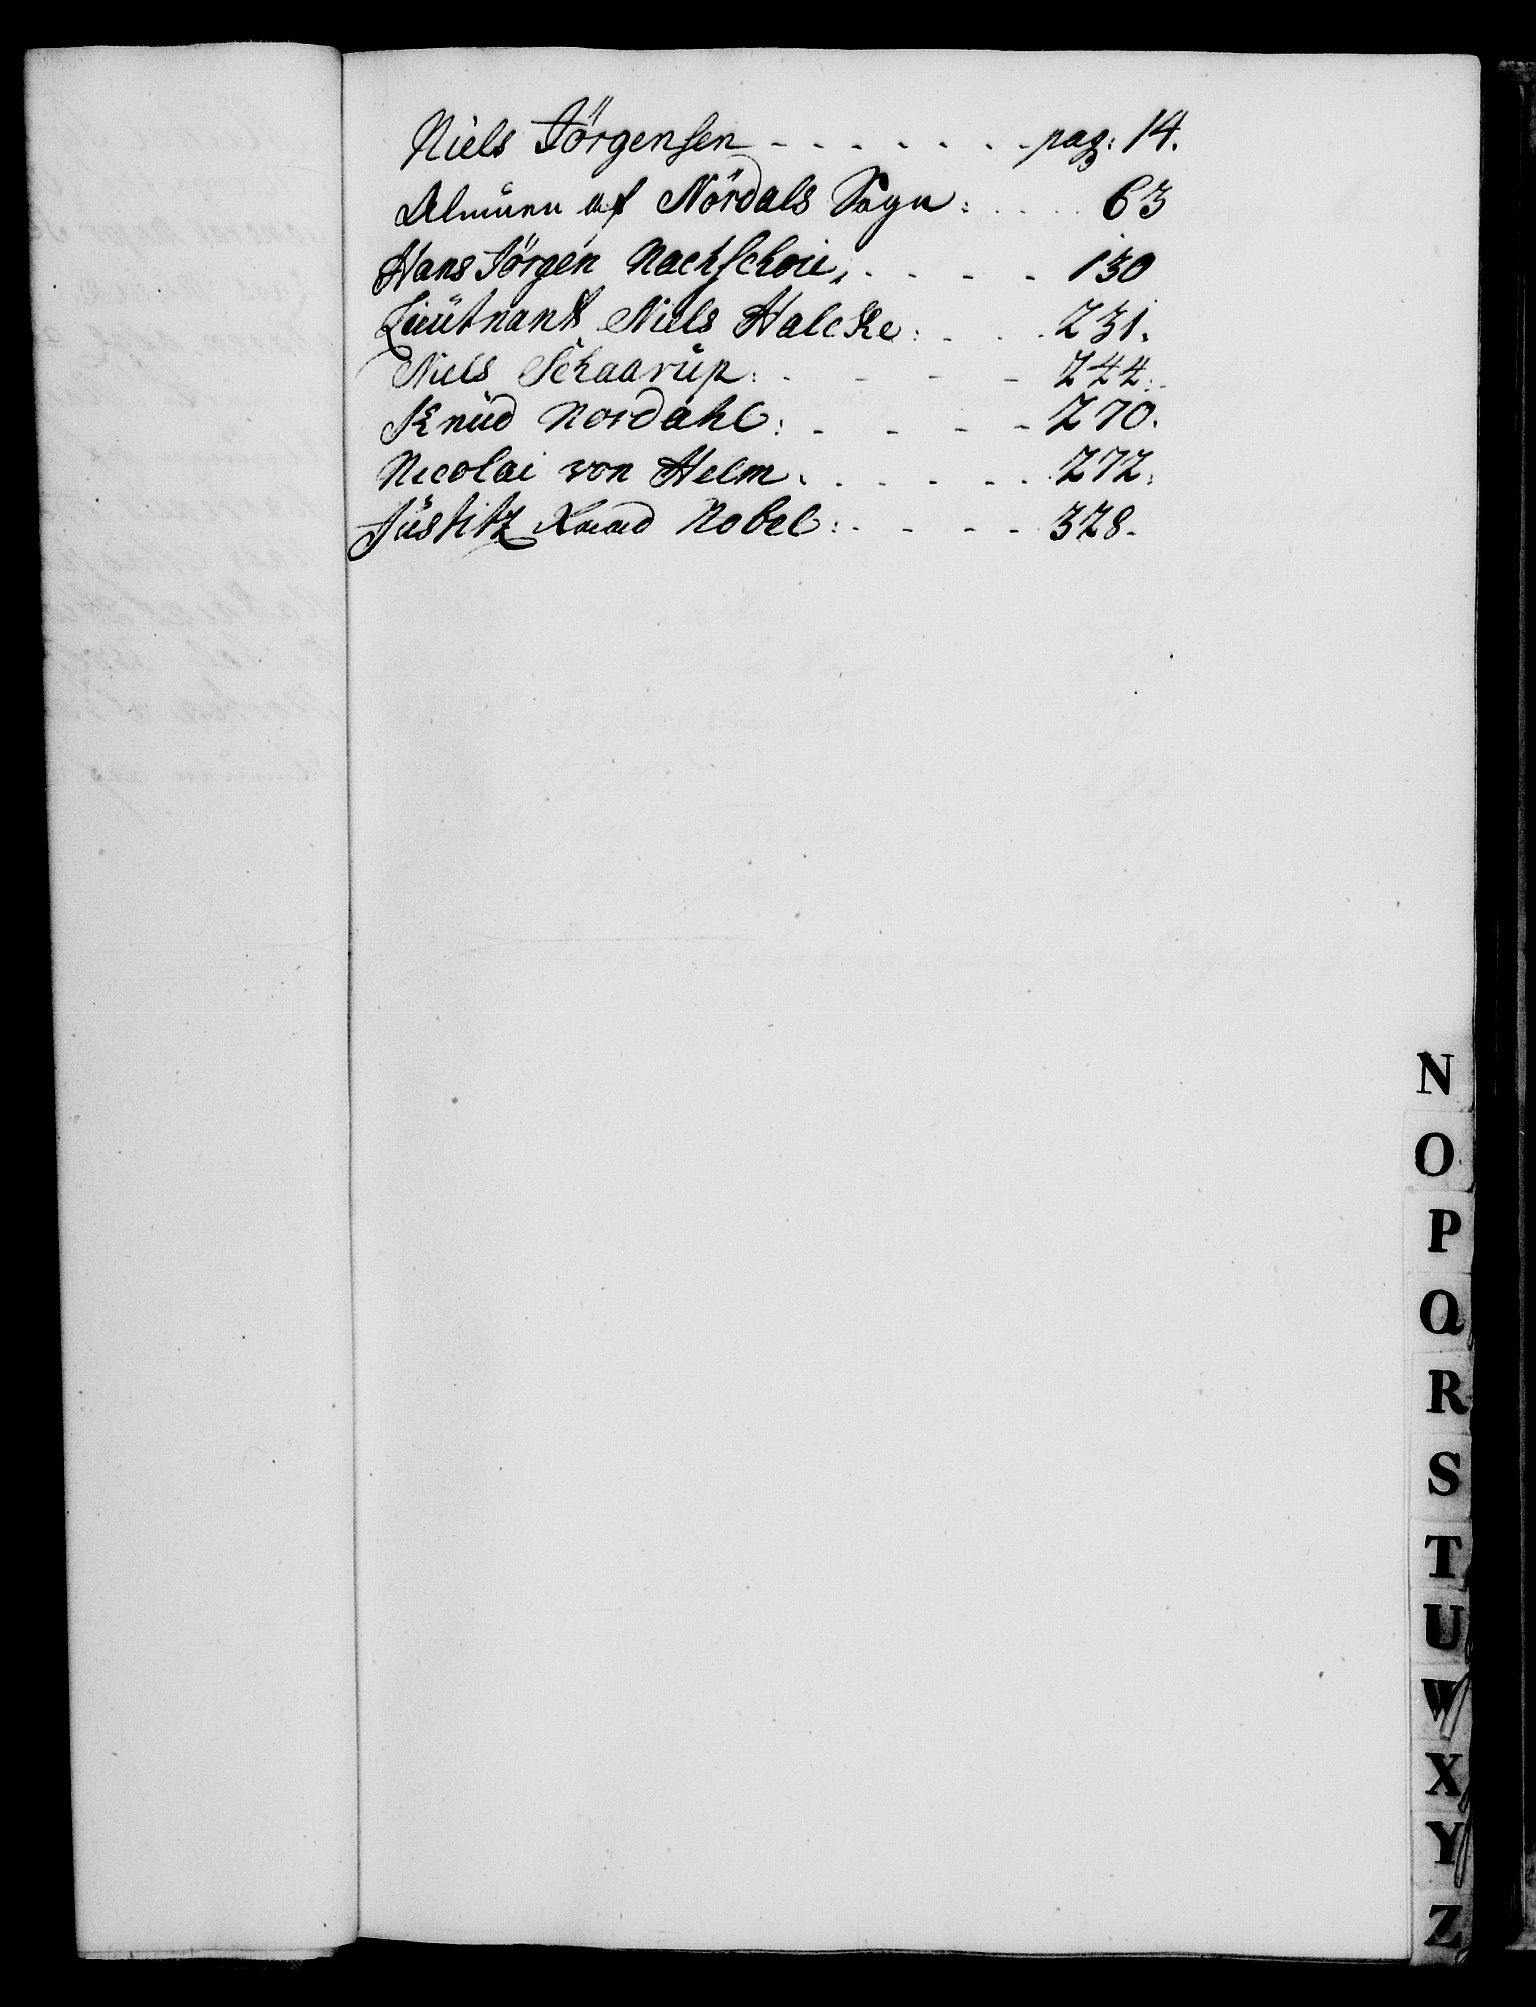 Niels Jörgensen - - - - - - - pag: 14.
Almuen af Nordals Sogn: . . . . 63
Hans Jörgen Nachschou. . - - - 130
Lieutnant Niels Halcke: - - . 231.
Niels Schaarup: - - - - 244.
Knud Nordahl: - - - - 270.
Nicolai von Helm. . . . . . 272.
Justitz Raad Nobel: - - - - 328.
N
O
P
Q
R
S
T
U
W
X
Y
Z